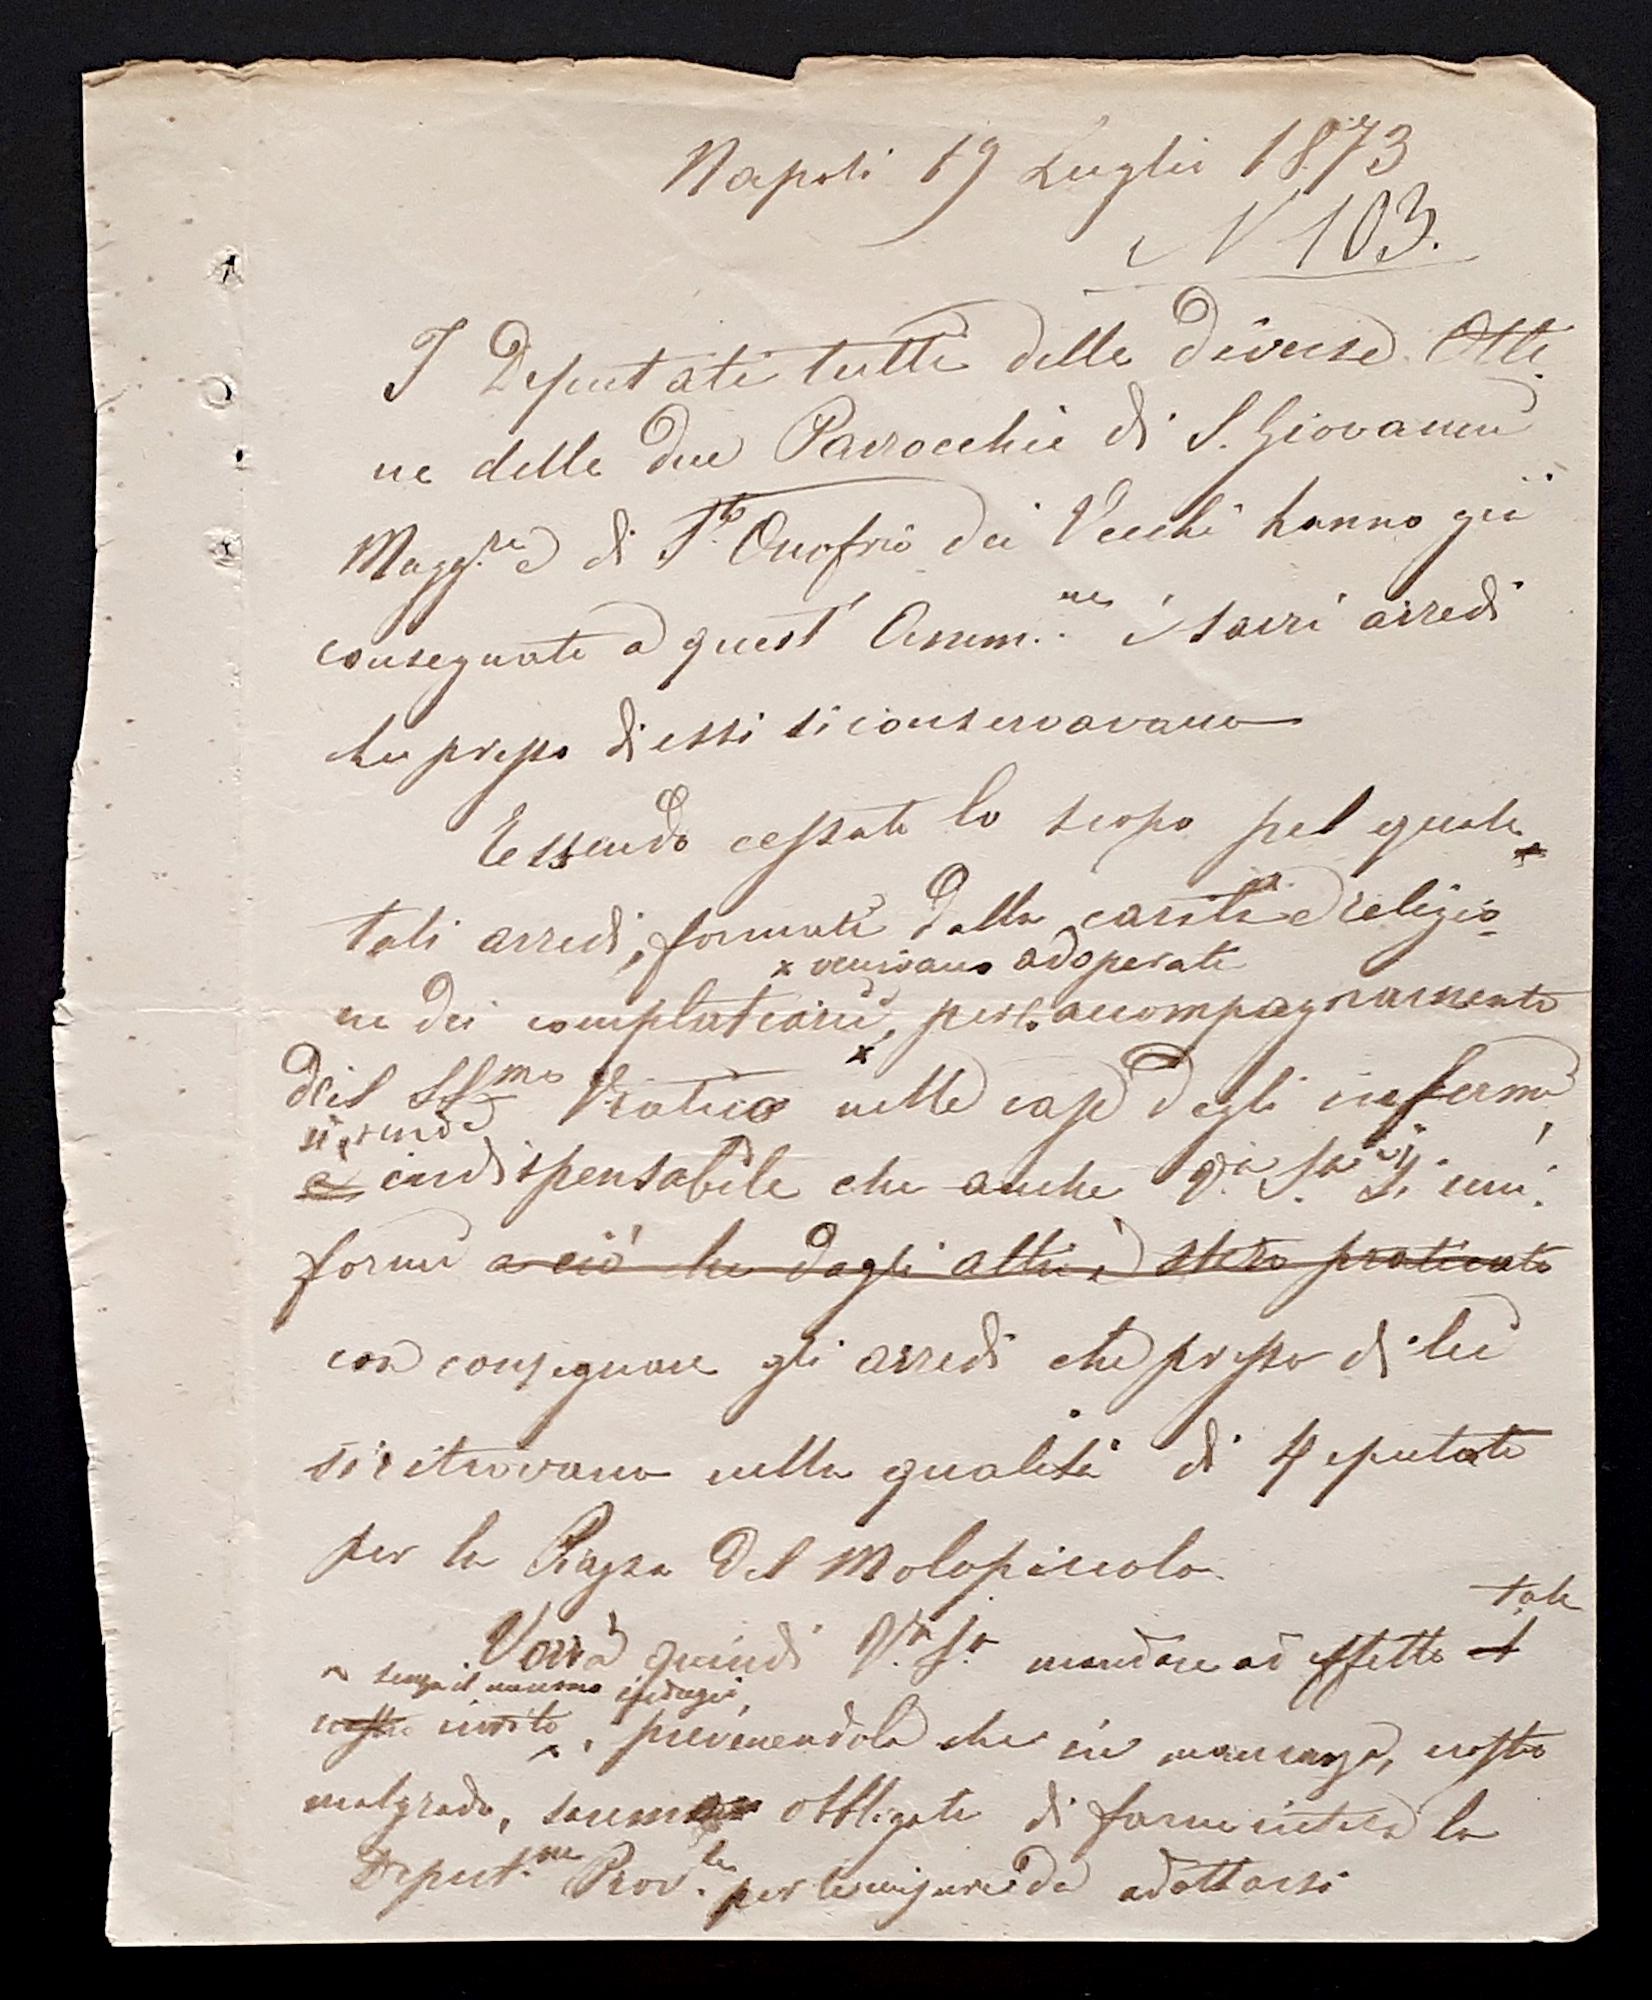 Napoli 19 Luglio 1873
N 103.
I Deputati tutti delle diverse Otti
ne delle due Parrocchie di S. Giovanni
Magg.re e di S.to Onofrio dei Vecchi hanno già
consegnate a quest' Amm.ne i sacri arredi
che presso di essi si conservavano
Essendo cessato lo scopo pel quale
tali arredi, formati dalla carità e religio
x venivano adoperati
ne dei complateari, per lo accompagnamento
x
del SS.mo Viatico nelle case degli infermi
si rende
è indispensabile che anche V.a S.a Ill. uni
formi a ciò che dagli altri è stato praticato
con consegnare gli arredi che presso di lei
si ritrovano nella qualità di Deputato
per la Piazza del Molopiccolo
tale
Vorrà quindi V.a S.a mandare ad effetto
senza il menomo indugio,
nostro invito, prevenendola che in mancanza, nostro
malgrado, saremo obbligati di farne intesa la
Deput.ne Prov.le per le misure da adottarsi